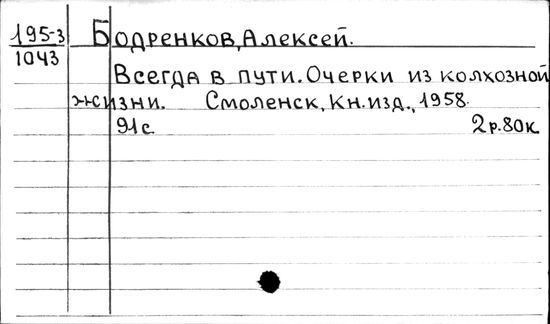 195-3 Бодренков, Алексей.
1043
Всегда в пути. Очерки из колхозной
жизни. Смоленск, Кн.изд., 1958.
91с. 2р.80к.